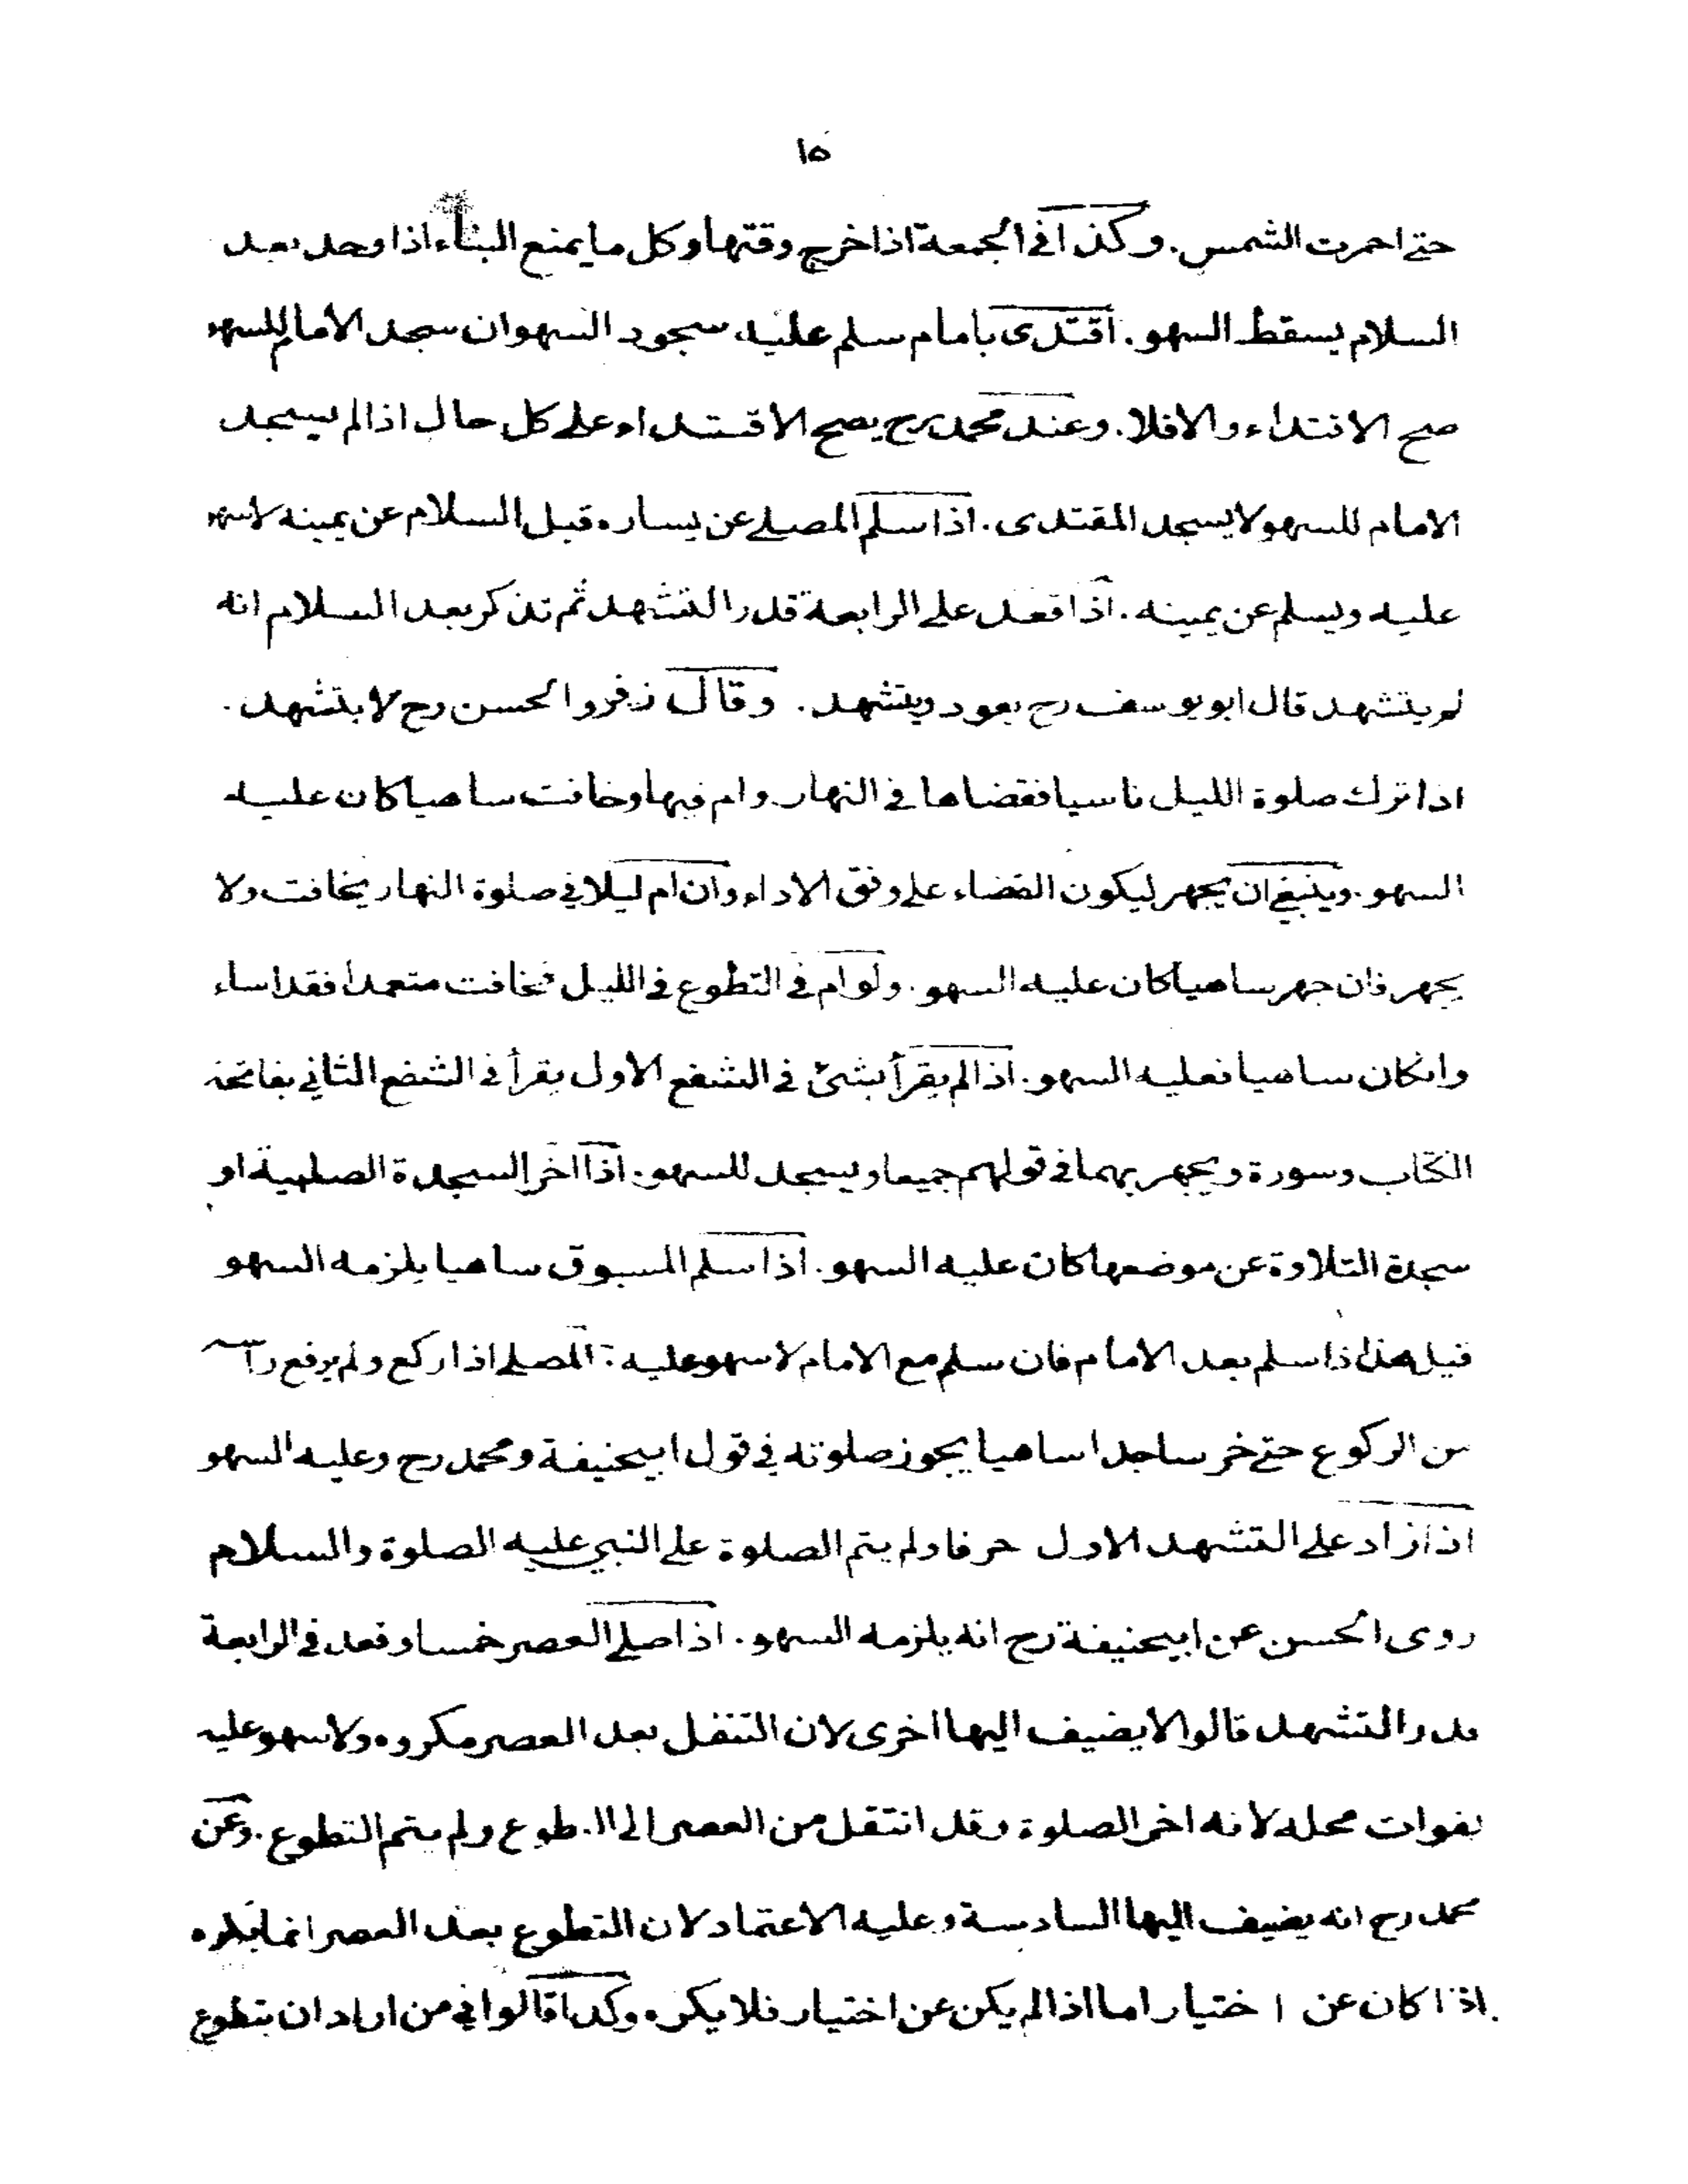 ١٥
حتى احمرت الشمس. وكذا فى الجمعة اذا خرج وقتها وكل ما يمنع البناء اذا وجد بعد
السلام يسقط السهو. اقتدى بامام سلم عليه سجود السهو ان سجد الامام للسهو
صح الاقتداء والا فلا. وعند محمد رح يصح الاقتداء على كل حال اذا لم يسجد
الامام للسهو لا يسجد المقتدى. اذا سلم المصلى عن يساره قبل السلام عن يمينه لا سهو
عليه ويسلم عن يمينه. اذا قعد على الرابعة قدر التشهد ثم تذكر بعد السلام انه
لم يتشهد قال ابو يوسف رح يعود ويتشهد. وقال زفر والحسن رح لا يتشهد.
اذا ترك صلوة الليل ناسيا فقضاها فى النهار وام فيها وخافت ساهيا كان عليه
السهو. وينبغى ان يجهر ليكون القضاء على وفق الاداء وان ام ليلا فى صلوة النهار يخافت ولا
يجهر فان جهر ساهيا كان عليه السهو. ولو ام فى التطوع فى الليل فخافت متعمدا فقد اساء
وانكان ساهيا فعليه السهو. اذا لم يقرأ بشئ فى الشفع الاول يقرأ فى الشفع الثانى بفاتحة
الكتاب وسورة ويجهر بهما فى قولهم جميعا ويسجد للسهو. اذا اخر السجدة الصلبية او
سجدة التلاوة عن موضعها كان عليه السهو. اذا سلم المسبوق ساهيا يلزمه السهو
قيل هذا اذا سلم بعد الامام فان سلم مع الامام لا سهو عليه. المصلى اذا ركع ولم يرفع رأسه
من الركوع حتى خر ساجدا ساهيا يجوز صلوته فى قول ابيحنيفة ومحمد رح وعليه السهو
اذا زاد على التشهد الاول حرفا ولم يتم الصلوة على النبي عليه الصلوة والسلام
روى الحسن عن ابيحنيفة رح انه يلزمه السهو. اذا صلى العصر خمسا وقعد فى الرابعة
قدر التشهد قالوا لا يضيف اليها اخرى لان التنفل بعد العصر مكروه ولا سهو عليه
لفوات محله لانه اخر الصلوة وقد انتقل من العصر الى التطوع ولم يتم التطوع. وعن
محمد رح انه يضيف اليها السادسة وعليه الاعتماد لان التطوع بعد العصر انما يكره
اذا كان عن اختيار اما اذا لم يكن عن اختيار فلا يكره وكذا قالوا فى من اراد ان يتطوع